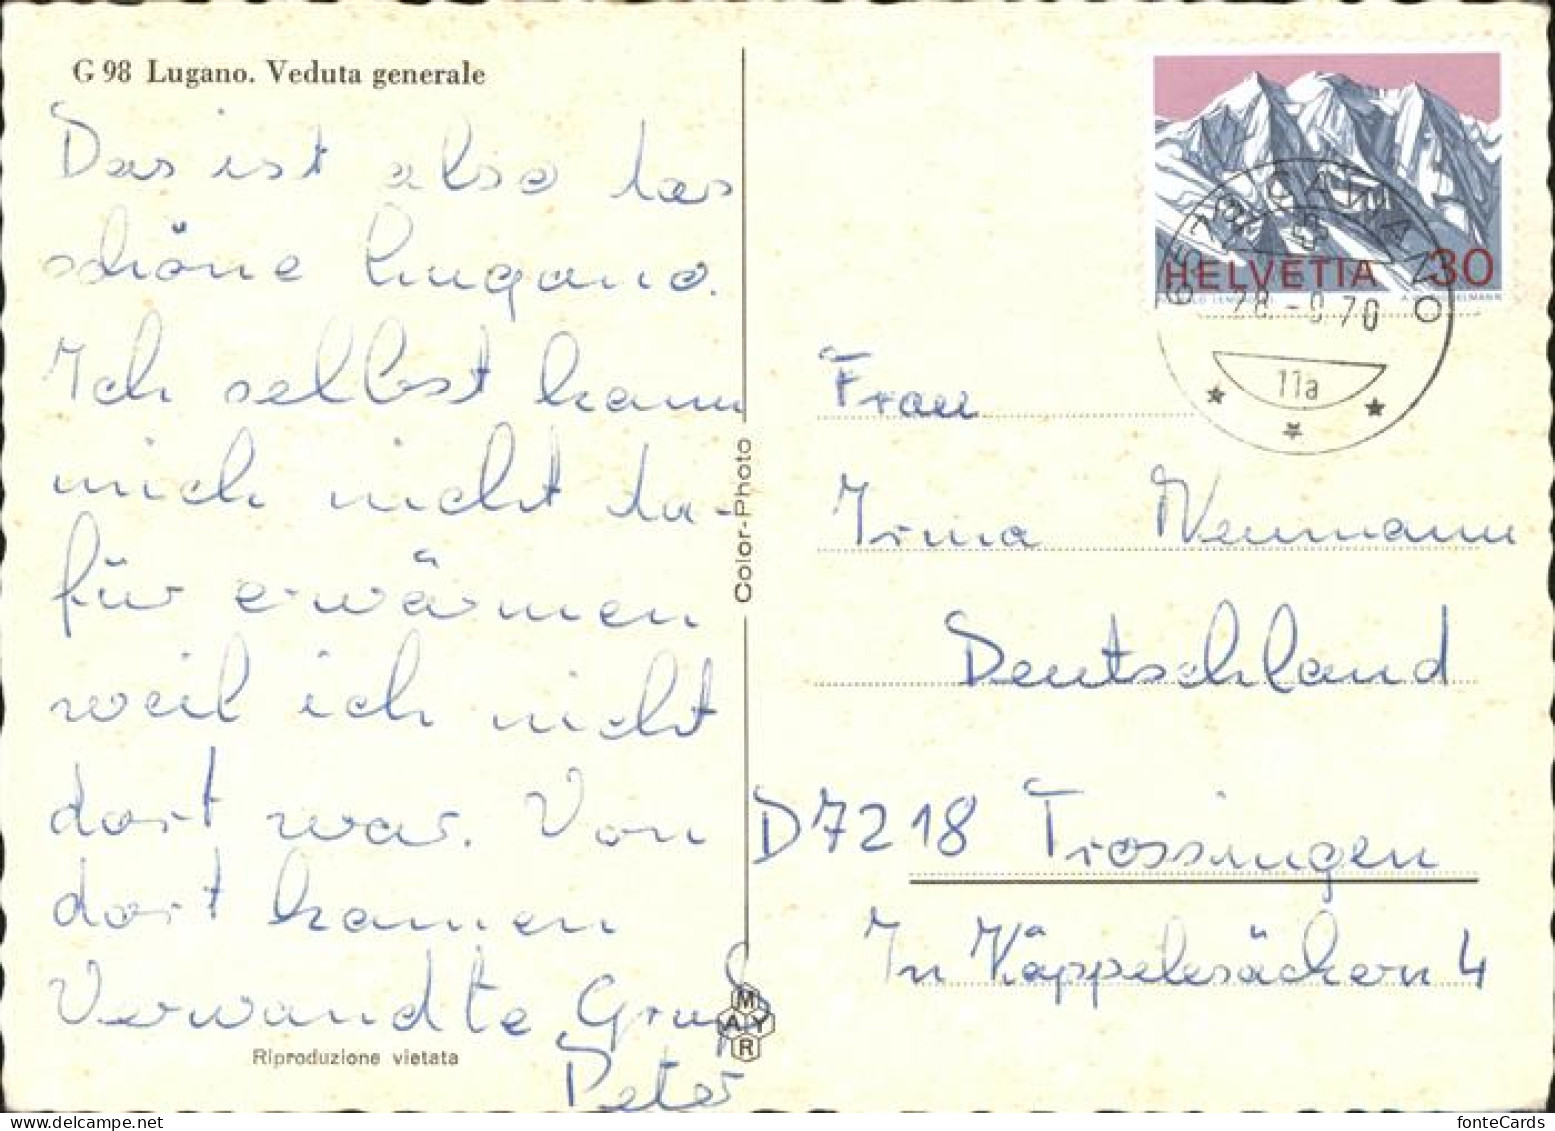 G 98 Lugano. Veduta generale
Das ist also das
schöne Lugano.
Ich selbst kann
mich nicht da-
für erwärmen
weil ich nicht
dort war. Von
dort kamen
Verwandte Gruß
Peter
Riproduzione vietata
Color-Photo
MAYR
HELVETIA 30
CATTANZO
28.-9.70
11a
Frau
Irma Neumann
Deutschland
D 7218 Trossingen
In Käppelesäckern 4
fonteCards